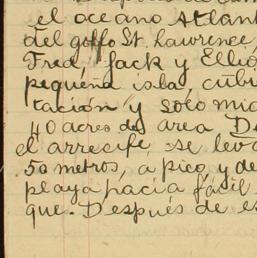 el oceano Atlant
del golfo St. Lawrence,
Fred, Jack y Ellio
pequeña isla, cubi
tación y solo mid
40 acres de area De
el arrecife se leva
50 metros, a pico, y de
playa hacia fácil
que. Después de es